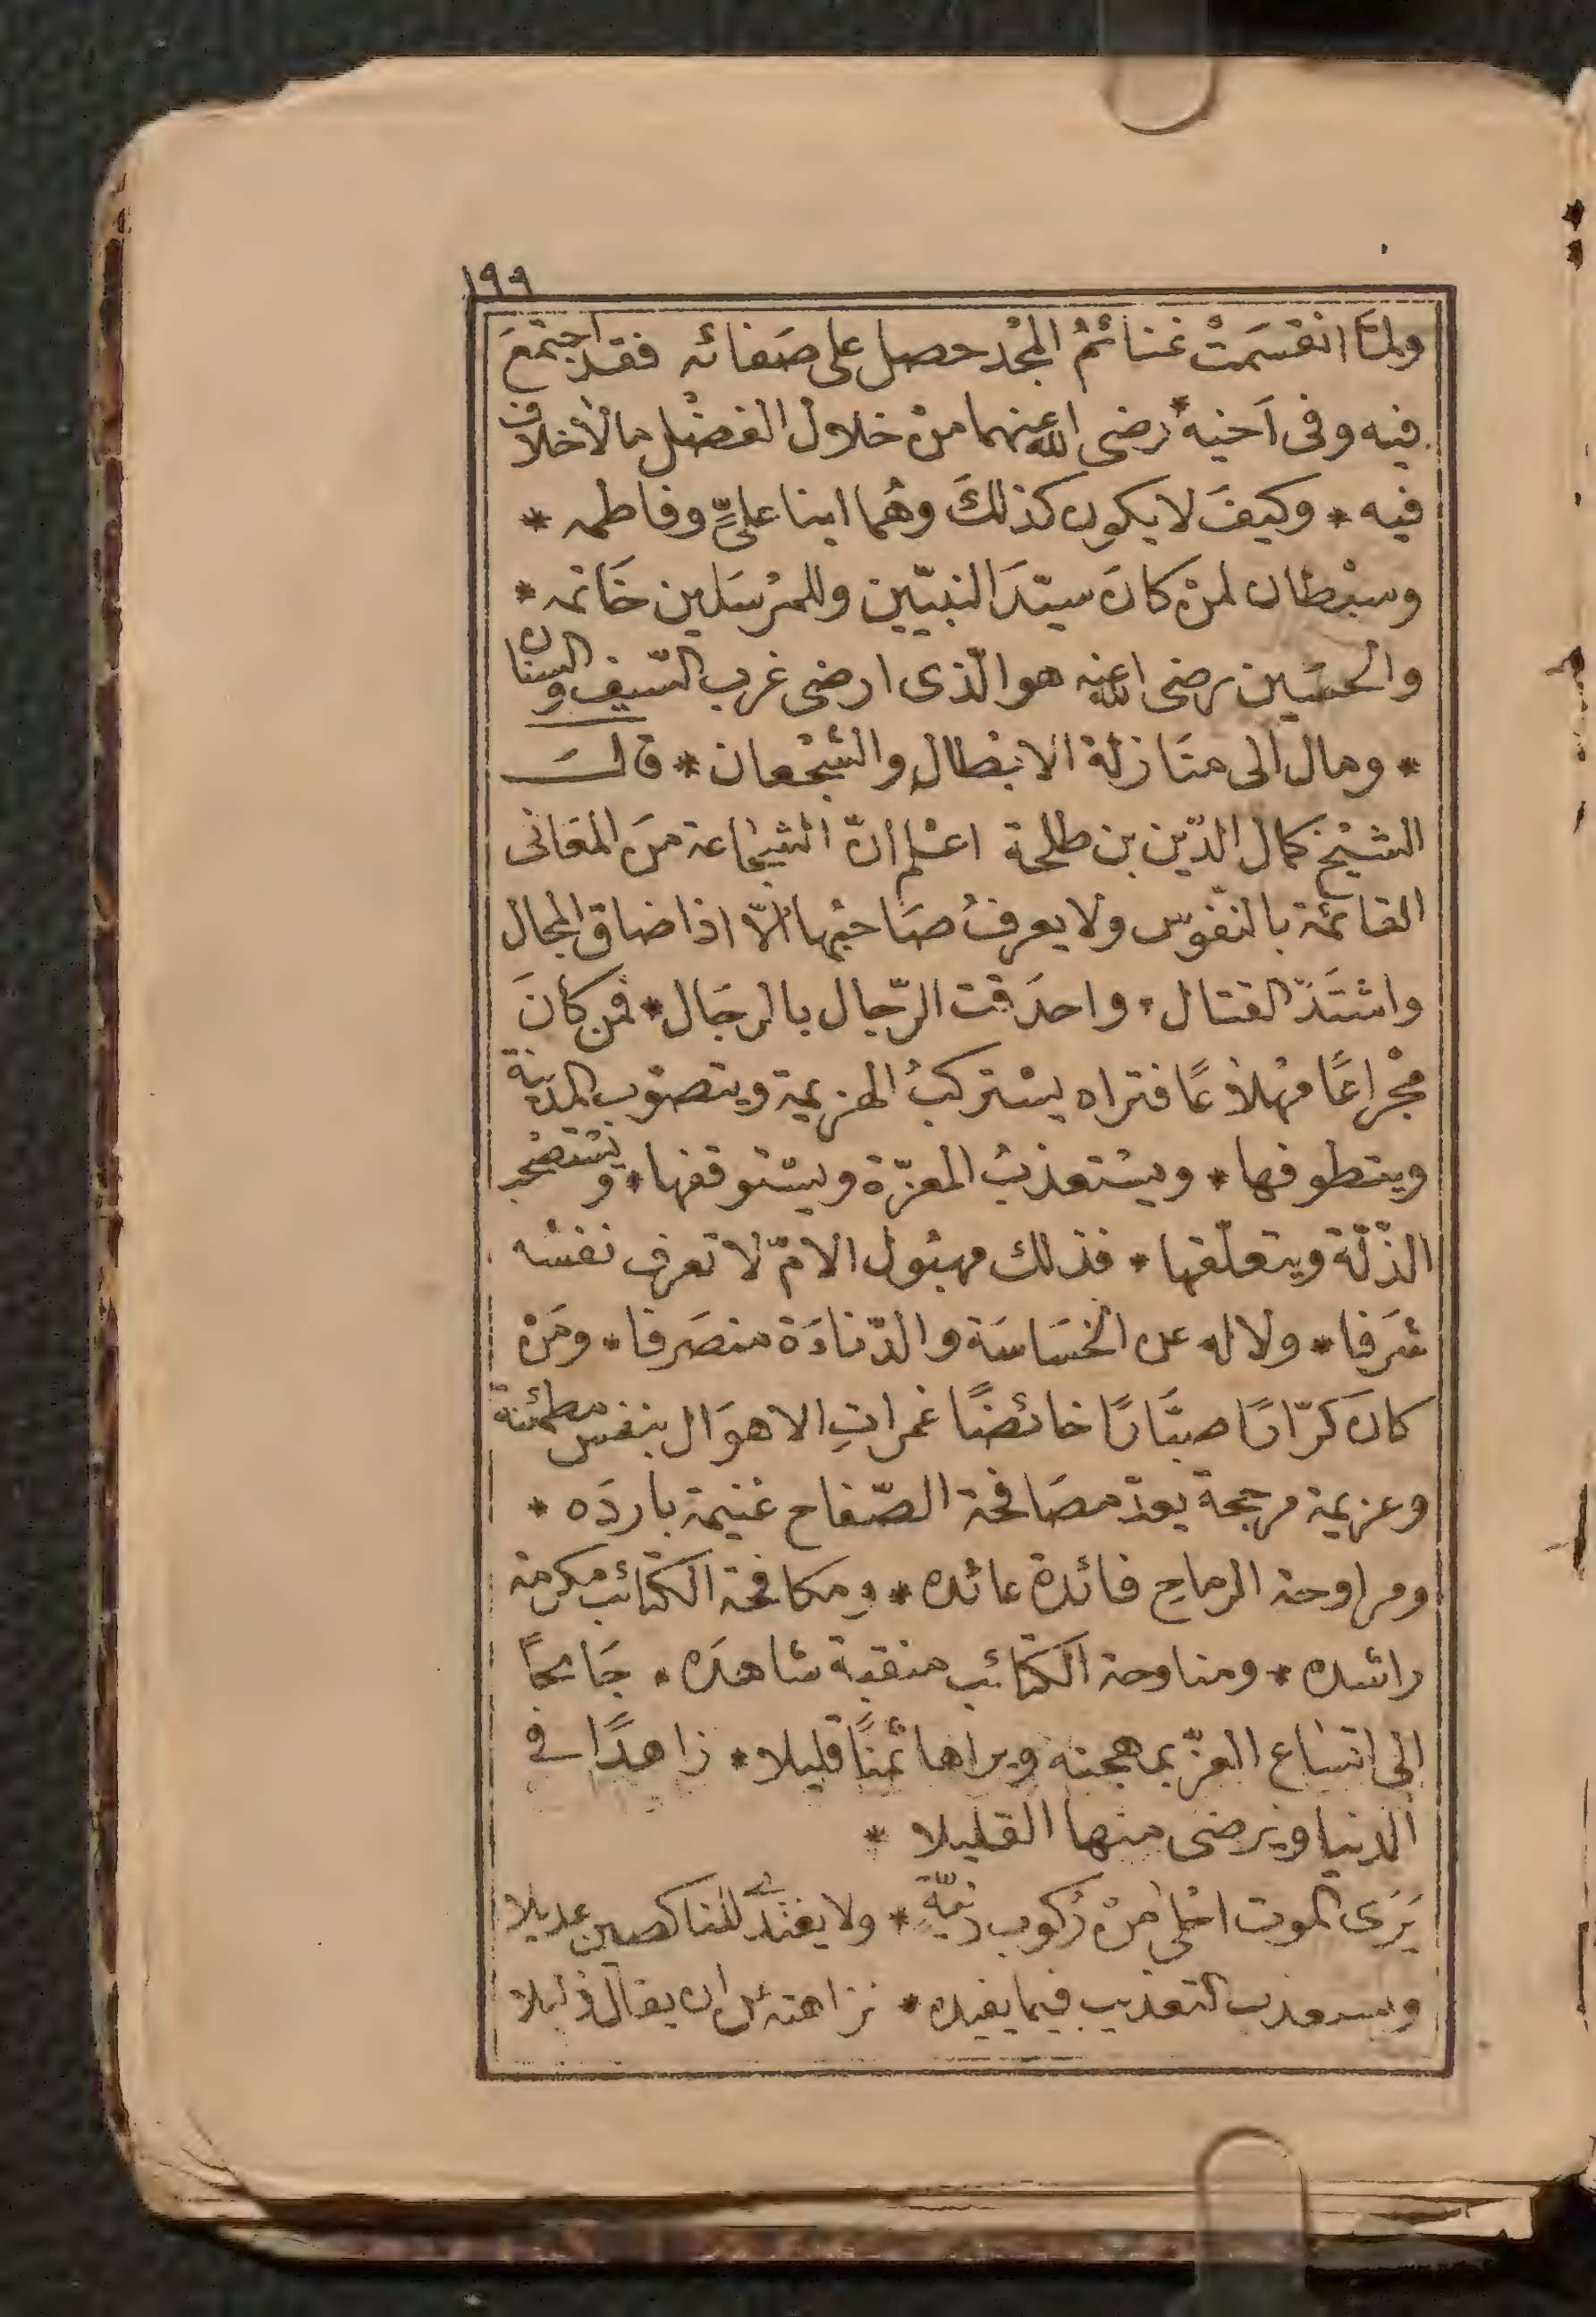 ١٩٩
ولمّا انقسَمَتْ غنائمُ المجْد حصل على صَفائه فقد اجتمَعَ
فيه وفى اَخيه * رضى الله عنهما من خلال الفضْل ما لاخلاف
فيه * وكيفَ لا يكون كذلكَ وهُما ابنا علىٍّ وفاطمه *
وسبْطان لمنْ كانَ سيّدَ النبيّين وللمرْسَلين خَاتمه *
والحسَين رضى الله عنه هو الّذى ارضى غرب السّيف والسنان
* ومال الى منَازلة الابْطال والشّجْعان * قالَ
الشيْخ كمال الدّين بن طلحة اعْلم انّ الشجَاعة منَ المعَانى
القائمة بالنفوس ولا يعرفُ صَاحبُها الّا اذا ضاق المجال
واشتَدّ القتال * واحدَقت الرّجال بالرجَال * فمن كانَ
مجْزاعًا مهْلاعًا فتراه يسْتركبُ الهزيمة ويتصوّب المدنية
ويتطوفها * ويسْتعذبُ المعزّة ويسْتوقفها * ويسْتصْحب
الذّلّة ويتعلّقها * فذلك مهبُول الامّ لا تعرف نفسُه
شرَفا * ولا له عن الخسَاسَة والدّناءَة منصَرفا * ومَنْ
كانَ كرّارًا صبَّارًا خائضًا غمراتِ الاهوَال بنفس مطمئنة
وعزيمة مرجحة يعدّ مصَافحة الصّفاح غنيمة باردَه *
ومراوحة الرماح فائدة عائده * ومكافحة الكتائب مكرمة
راشده * ومناوحة الكتَائب منقبة شاهدَه * جَامحًا
الى ابتياع العزّ بمهجته ويراها ثمنًا قليلا * زاهدًا فى
الدنيا ويرضى منها القليلا *
يَرَى الموت احْلى منْ رُكوب دنيّةٍ * ولا يغتدى للناكصين عديلا
ويستعذب التعذيب فيما يفيده * نزاهته عن ان يقال ذليلا